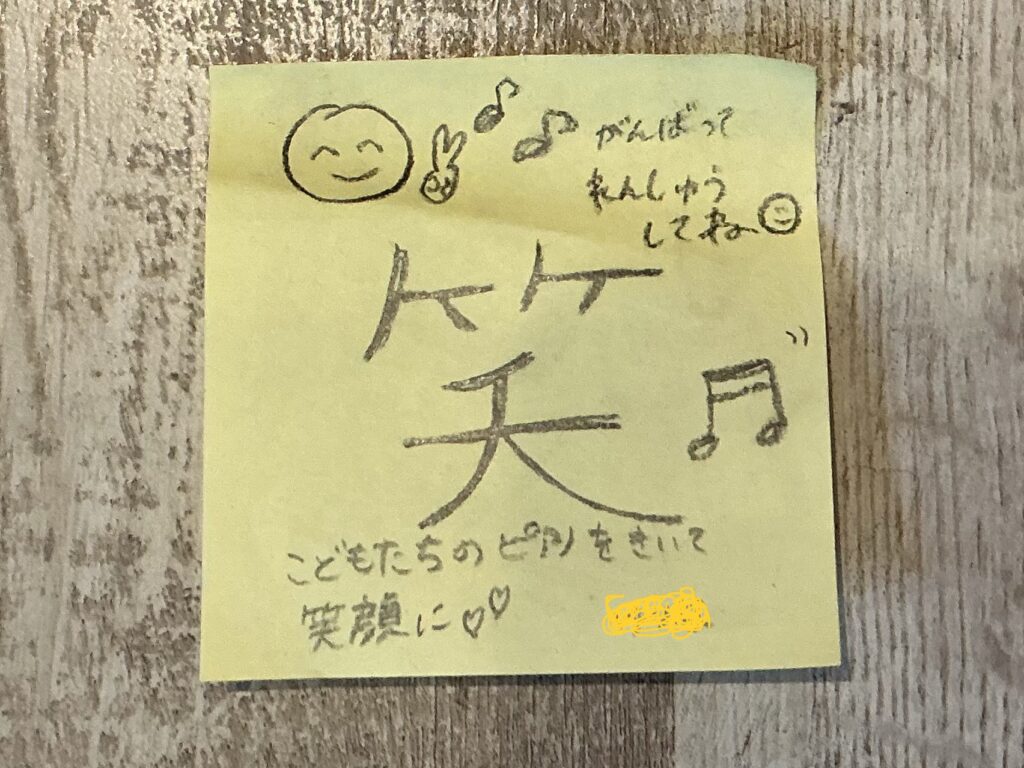 がんばって
れんしゅう
してね
笑
こどもたちのピアノをきいて
笑顔に♡♡